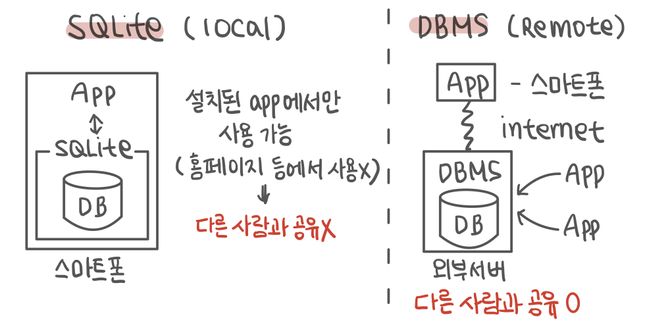 SQLite (local)
App
SQLite
DB
스마트폰
설치된 app에서만
사용 가능
(홈페이지 등에서 사용X)
다른 사람과 공유X
DBMS (Remote)
App - 스마트폰
internet
DBMS
DB
App
App
외부서버
다른 사람과 공유 O